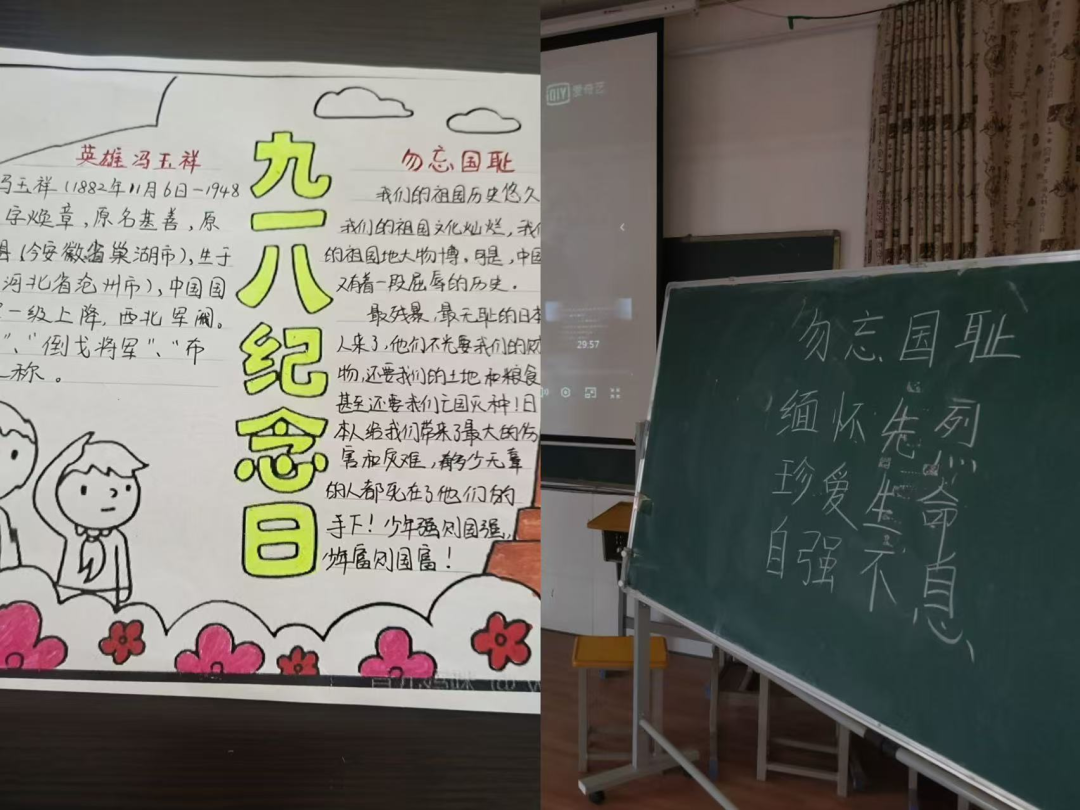 英雄冯玉祥
冯玉祥（1882年11月6日—1948
字焕章，原名基善，原
县（今安徽省巢湖市），生于
河北省沧州市），中国国
一级上降，西北军阀。
”、“倒戈将军”、“布
称。
九一八纪念日
勿忘国耻
我们的祖国历史悠久
我们的祖国文化灿烂，我们
的祖国地大物博。可是，中国
又有着一段屈辱的历史。
最残暴、最无耻的日本
人来了，他们不光要我们的财
物，还要我们的土地和粮食
甚至还要我们亡国灭种！日
本人给我们带来了最大的伤
害和灾难，有多少无辜
的人都死在了他们的
手下！少年强则国强，
少年富则国富！
iQIYI 爱奇艺
29:57
勿忘国耻
缅怀先烈
珍爱生命
自强不息